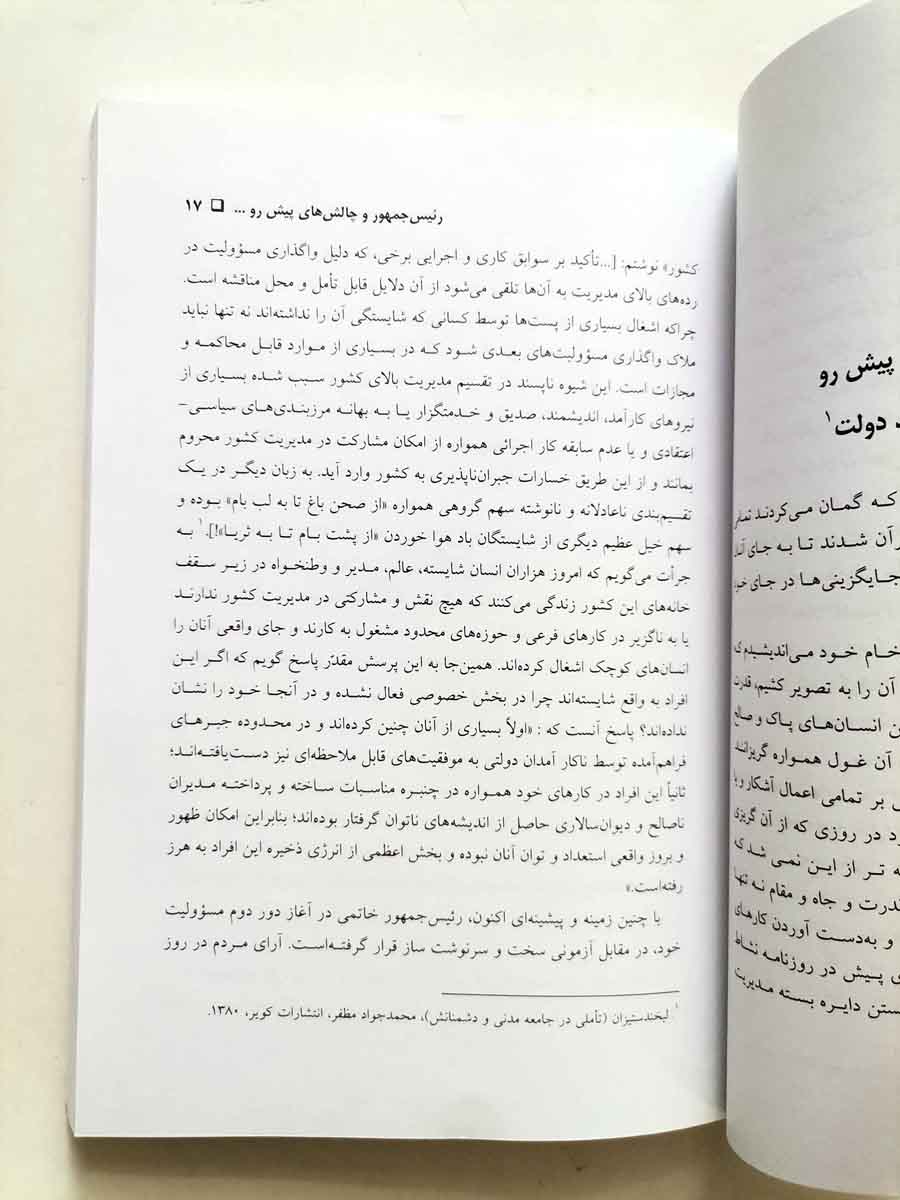 پیش رو
دولت۱
که گمان می‌کردند تمامی
آن شدند تا به جای آنان
جایگزینی‌ها در جای خود
خام خود می‌اندیشیدم که
آن را به تصویر کشیم، قدرت
انسان‌های پاک و صالح
آن غول همواره گریزانند
بر تمامی اعمال آشکار و یا
در روزی که از آن گریزی
تر از این نمی شد که
قدرت و جاه و مقام نه تنها
و به‌دست آوردن کارهای
پیش در روزنامه نشاط
بسته مدیریت دایره
رئیس‌جمهور و چالش‌های پیش رو ... ❑ ۱۷
کشور» نوشتم: [...تأکید بر سوابق کاری و اجرایی برخی، که دلیل واگذاری مسؤولیت در
رده‌های بالای مدیریت به آن‌ها تلقی می‌شود از آن دلایل قابل تأمل و محل مناقشه است.
چراکه اشغال بسیاری از پست‌ها توسط کسانی که شایستگی آن را نداشته‌اند نه تنها نباید
ملاک واگذاری مسؤولیت‌های بعدی شود که در بسیاری از موارد قابل محاکمه و
مجازات است. این شیوه ناپسند در تقسیم مدیریت بالای کشور سبب شده بسیاری از
نیروهای کارآمد، اندیشمند، صدیق و خدمتگزار یا به بهانه مرزبندی‌های سیاسی-
اعتقادی و یا عدم سابقه کار اجرائی همواره از امکان مشارکت در مدیریت کشور محروم
بمانند و از این طریق خسارات جبران‌ناپذیری به کشور وارد آید. به زبان دیگر در یک
تقسیم‌بندی ناعادلانه و نانوشته سهم گروهی همواره «از صحن باغ تا به لب بام» بوده و
سهم خیل عظیم دیگری از شایستگان باد هوا خوردن «از پشت بام تا به ثریا»!].۱ به
جرأت می‌گویم که امروز هزاران انسان شایسته، عالم، مدیر و وطنخواه در زیر سقف
خانه‌های این کشور زندگی می‌کنند که هیچ نقش و مشارکتی در مدیریت کشور ندارند
یا به ناگزیر در کارهای فرعی و حوزه‌های محدود مشغول به کارند و جای واقعی آنان را
انسان‌های کوچک اشغال کرده‌اند. همین‌جا به این پرسش مقدّر پاسخ گویم که اگر این
افراد به واقع شایسته‌اند چرا در بخش خصوصی فعال نشده و در آنجا خود را نشان
نداده‌اند؟ پاسخ آنست که : «اولاً بسیاری از آنان چنین کرده‌اند و در محدوده جبرهای
فراهم‌آمده توسط ناکار آمدان دولتی به موفقیت‌های قابل ملاحظه‌ای نیز دست‌یافته‌اند؛
ثانیاً این افراد در کارهای خود همواره در چنبره مناسبات ساخته و پرداخته مدیران
ناصالح و دیوان‌سالاری حاصل از اندیشه‌های ناتوان گرفتار بوده‌اند؛ بنابراین امکان ظهور
و بروز واقعی استعداد و توان آنان نبوده و بخش اعظمی از انرژی ذخیره این افراد به هرز
رفته‌است.»
با چنین زمینه و پیشینه‌ای اکنون، رئیس‌جمهور خاتمی در آغاز دور دوم مسؤولیت
خود، در مقابل آزمونی سخت و سرنوشت ساز قرار گرفته‌است. آرای مردم در روز
۱ لبخندستیزان (تأملی در جامعه مدنی و دشمنانش)، محمدجواد مظفر، انتشارات کویر، ۱۳۸۰.